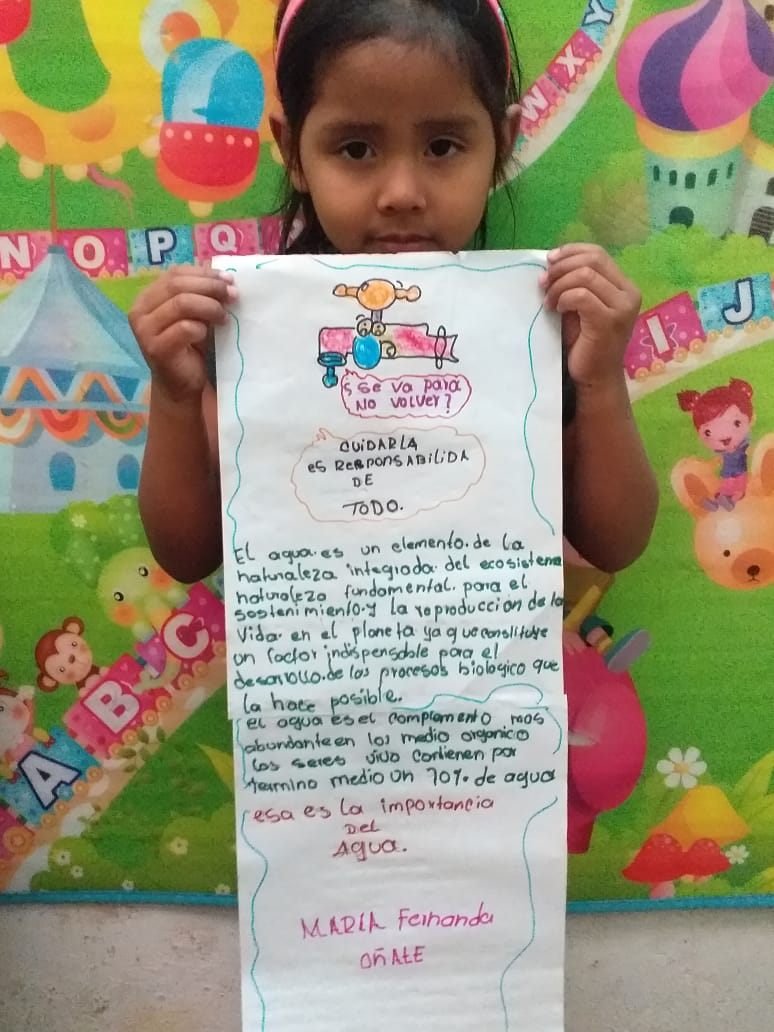 N O P Q
W X Y
I J
A B C
¿Se va para
No volver?
CUIDARLA
es RESPONSABILIDA
DE
TODO.
El agua. es un elemento. de la
naturaleza integrada. del ecosistema
naturaleza fundamental. para el
sostenimiento. y la reproduccion de la
Vida. en el planeta ya que constituye
un factor indispensable para el
desarollo. de los procesos biologico que
la hace posible.
el agua es el complemento mas
abundante en los medio organico
los seres vivo contienen por
termino medio un 70% de agua
esa es la importancia
DEL
Agua.
MARÍA Fernanda
OÑATE